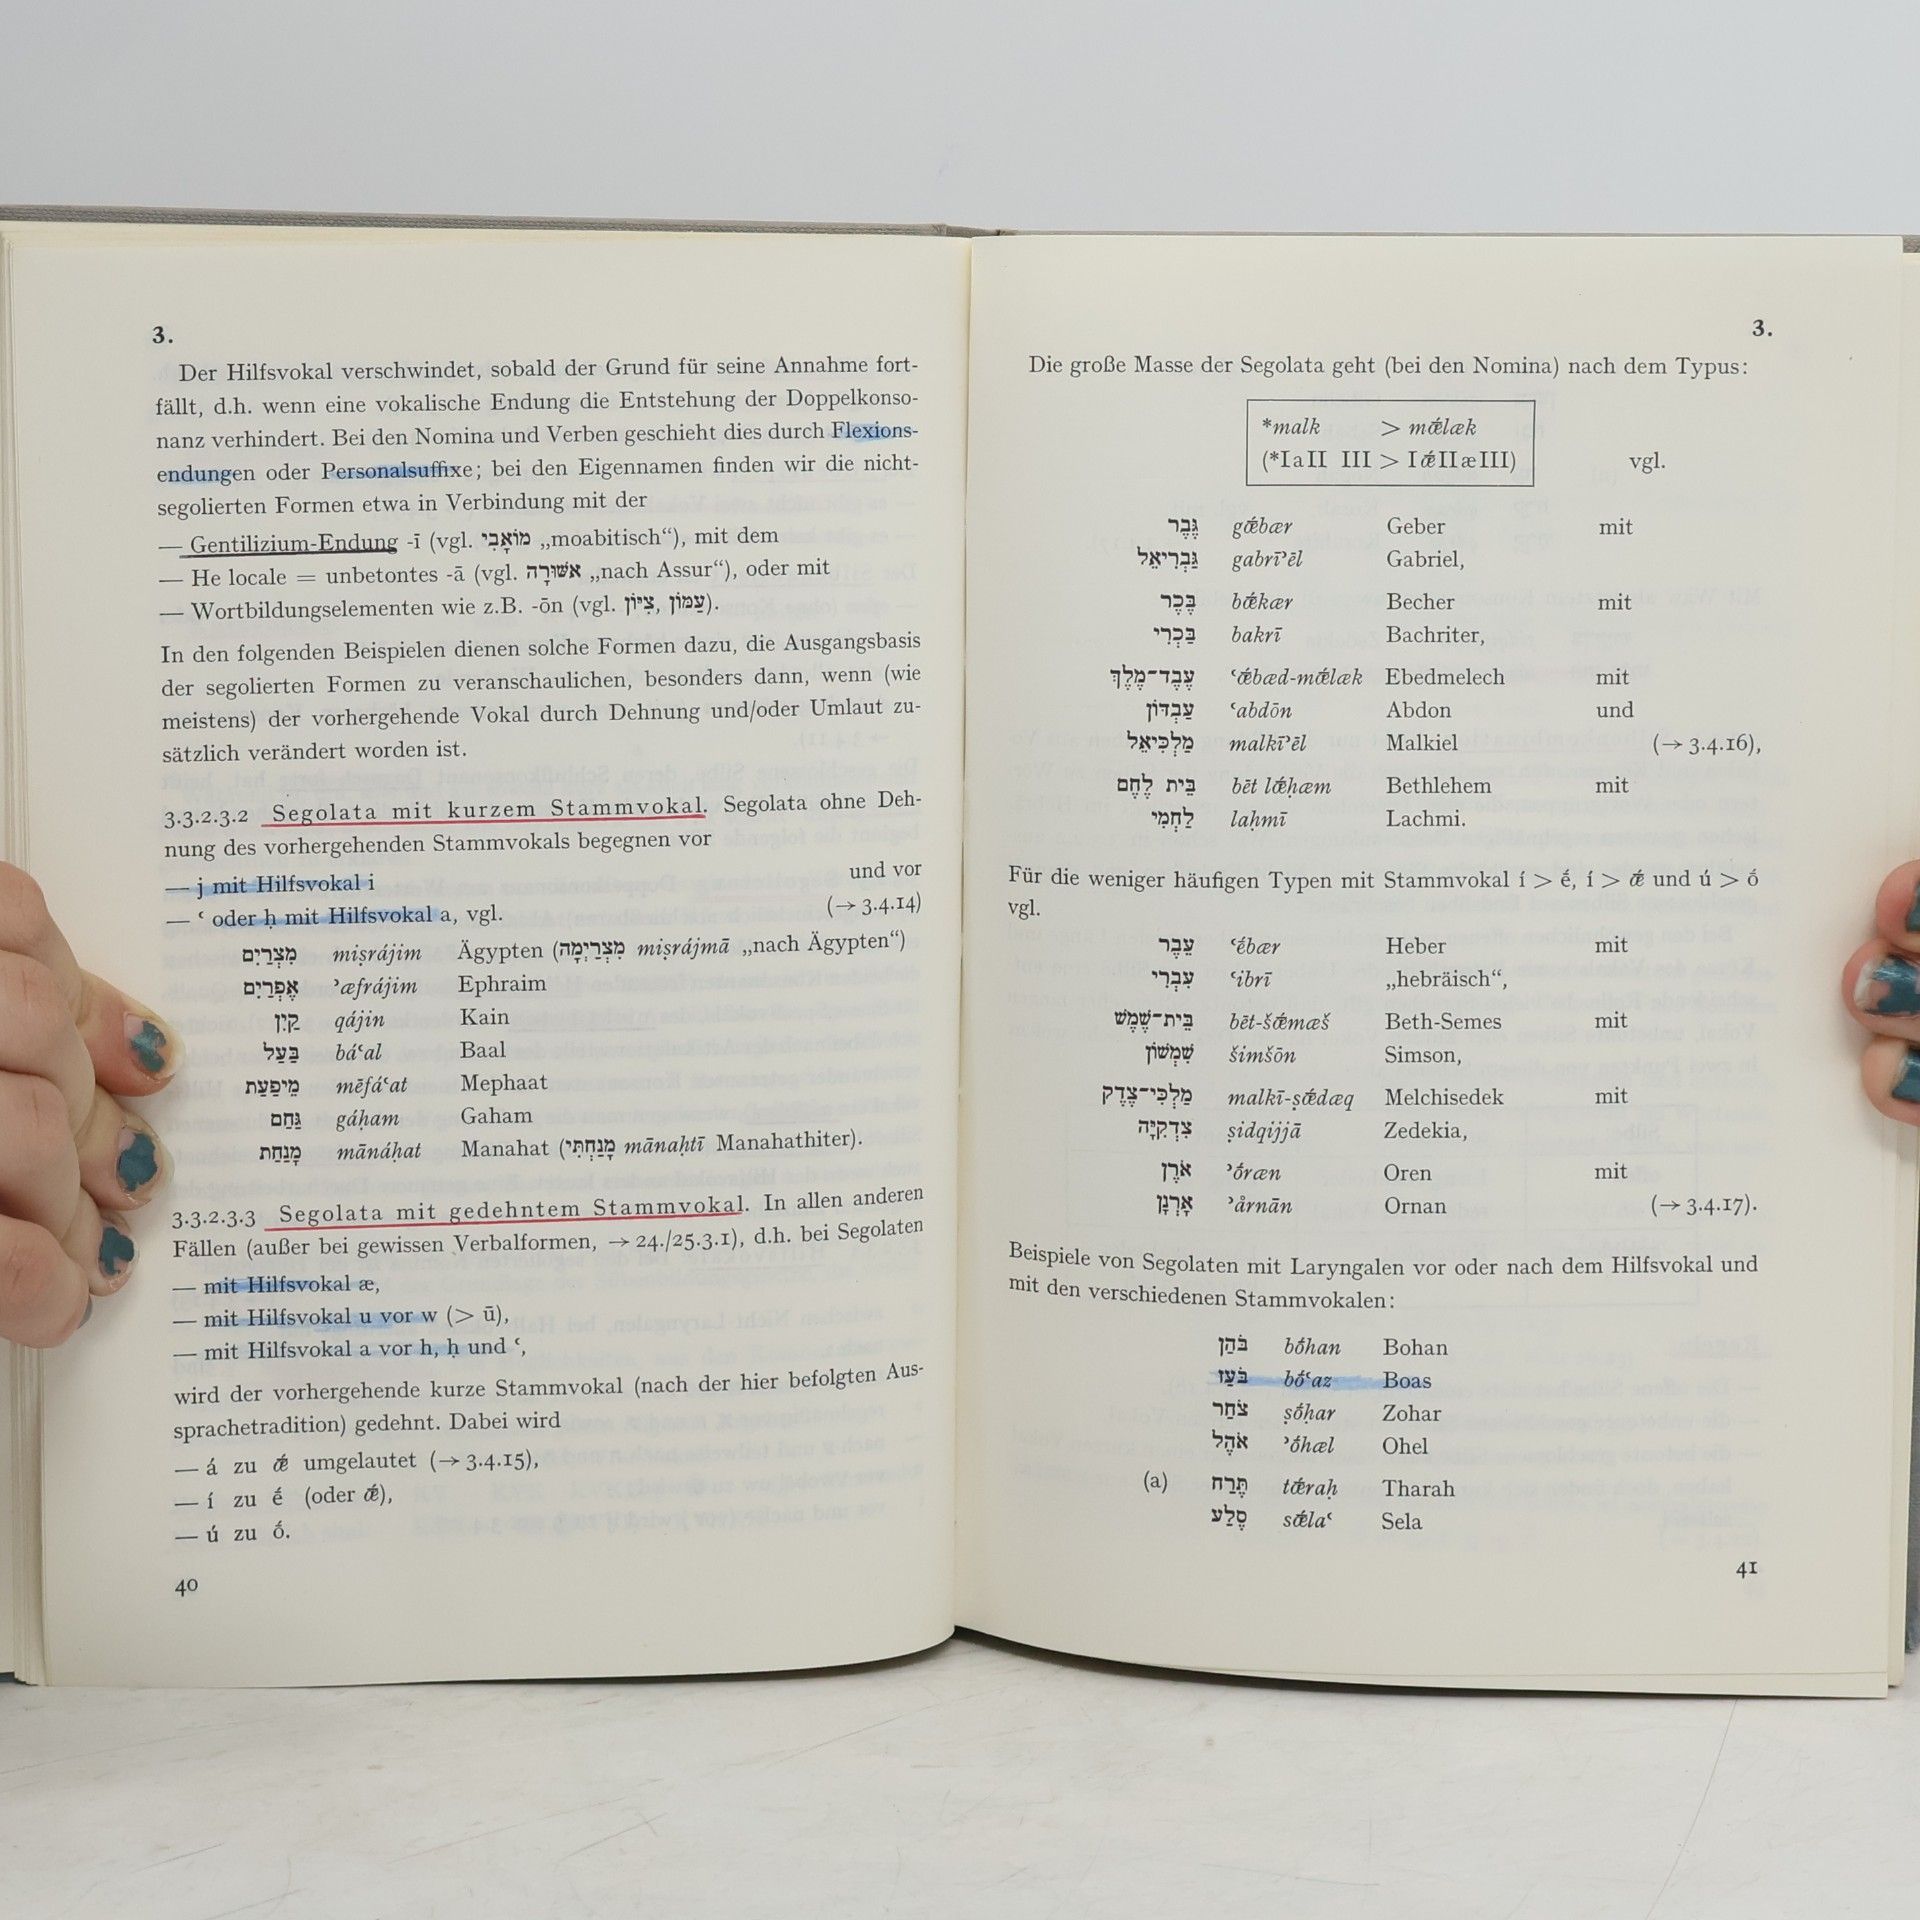 3.
Der Hilfsvokal verschwindet, sobald der Grund für seine Annahme fort-
fällt, d.h. wenn eine vokalische Endung die Entstehung der Doppelkonso-
nanz verhindert. Bei den Nomina und Verben geschieht dies durch Flexions-
endungen oder Personalsuffixe; bei den Eigennamen finden wir die nicht-
segolierten Formen etwa in Verbindung mit der
— Gentilizium-Endung -ī (vgl. מוֹאָבִי „moabitisch“), mit dem
— He locale = unbetontes -ā (vgl. אַשּׁוּרָה „nach Assur“), oder mit
— Wortbildungselementen wie z.B. -ōn (vgl. עַמּוֹן, צִיּוֹן).
In den folgenden Beispielen dienen solche Formen dazu, die Ausgangsbasis
der segolierten Formen zu veranschaulichen, besonders dann, wenn (wie
meistens) der vorhergehende Vokal durch Dehnung und/oder Umlaut zu-
sätzlich verändert worden ist.
3.3.2.3.2 Segolata mit kurzem Stammvokal. Segolata ohne Deh-
nung des vorhergehenden Stammvokals begegnen vor
— j mit Hilfsvokal i und vor
— ʿ oder ḥ mit Hilfsvokal a, vgl. (→ 3.4.14)
מִצְרַיִם miṣrájim Ägypten (מִצְרַיְמָה miṣrájmā „nach Ägypten“)
אֶפְרַיִם ʾæfrájim Ephraim
קַיִן qájin Kain
בַּעַל báʿal Baal
מֵיפַעַת mēfáʿat Mephaat
גַּחַם gáḥam Gaham
מָנַחַת mānáḥat Manahat (מָנַחְתִּי mānaḥtī Manahathiter).
3.3.2.3.3 Segolata mit gedehntem Stammvokal. In allen anderen
Fällen (außer bei gewissen Verbalformen, → 24./25.3.1), d.h. bei Segolaten
— mit Hilfsvokal æ,
— mit Hilfsvokal u vor w (> ū),
— mit Hilfsvokal a vor h, ḥ und ʿ,
wird der vorhergehende kurze Stammvokal (nach der hier befolgten Aus-
sprachetradition) gedehnt. Dabei wird
— á zu ǣ́ umgelautet (→ 3.4.15),
— í zu ḗ (oder ǣ́),
— ú zu ṓ.
40
3.
Die große Masse der Segolata geht (bei den Nomina) nach dem Typus:
*malk > mǣ́læk
(*IaII III > Iǣ́IIæIII) vgl.
גֶּבֶר gǣ́bær Geber mit
גַּבְרִיאֵל gabrīʾēl Gabriel,
בֶּכֶר bǣ́kær Becher mit
בַּכְרִי bakrī Bachriter,
עֶבֶד־מֶלֶךְ ʿǣ́bæd-mǣ́læk Ebedmelech mit
עַבְדּוֹן ʿabdōn Abdon und
מַלְכִּיאֵל malkīʾēl Malkiel (→ 3.4.16),
בֵּית לֶחֶם bēt lǣ́ḥæm Bethlehem mit
לַחְמִי laḥmī Lachmi.
Für die weniger häufigen Typen mit Stammvokal í > ḗ, í > ǣ́ und ú > ṓ
vgl.
עֵבֶר ʿḗbær Heber mit
עִבְרִי ʿibrī „hebräisch“,
בֵּית־שֶׁמֶשׁ bēt-šǣ́mæš Beth-Semes mit
שִׁמְשׁוֹן šimšōn Simson,
מַלְכִּי־צֶדֶק malkī-ṣǣ́dæq Melchisedek mit
צִדְקִיָּה ṣidqijjā Zedekia,
אֹרֶן ʾṓræn Oren mit
אָרְנָן ʾårnān Ornan (→ 3.4.17).
Beispiele von Segolaten mit Laryngalen vor oder nach dem Hilfsvokal und
mit den verschiedenen Stammvokalen:
בֹּהַן bṓhan Bohan
בֹּעַז bṓʿaz Boas
צֹחַר ṣṓḥar Zohar
אֹהֶל ʾṓhæl Ohel
(a) תֶּרַח tǣ́raḥ Tharah
סֶלַע sǣ́laʿ Sela
41